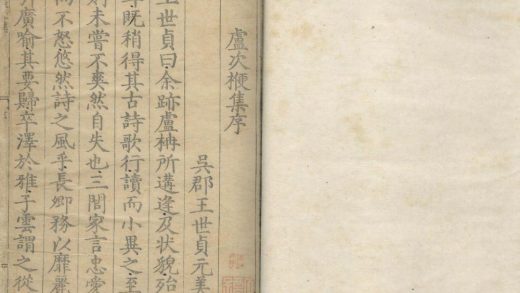 盧次楩集序
吳郡王世貞元美
王世貞曰余跡盧柟所遘逢及狀貌殆
既稍得其古詩歌行讀而小異之至
則未嘗不爽然自失也三閭家言忠愛
而不怒悠然詩之風乎長卿務以靡麗
廣喻其要歸卒澤於雅子雲謂之從